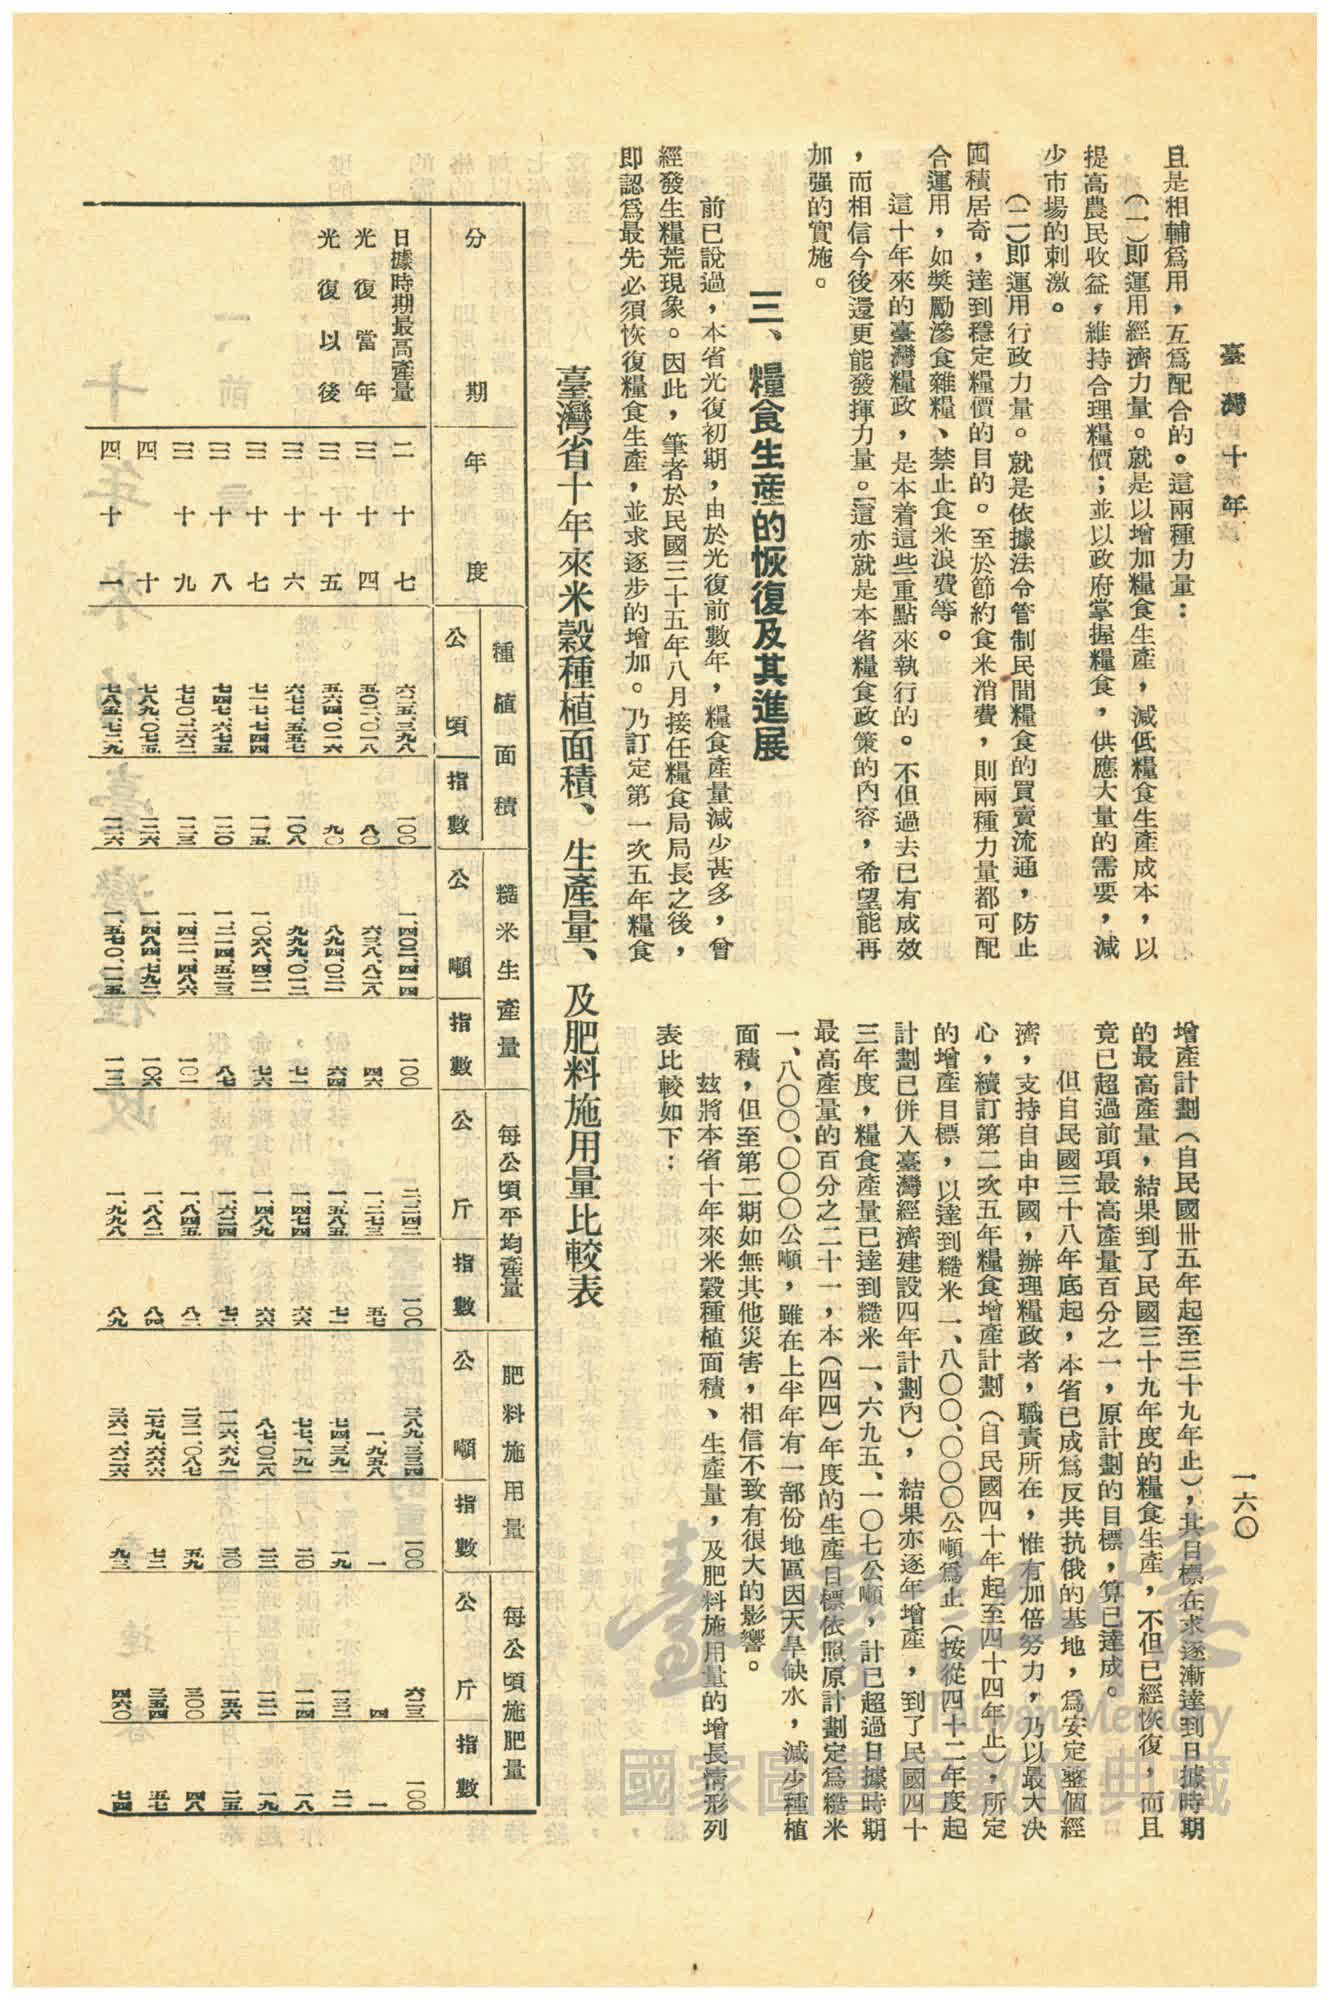 臺灣十年
一六〇
且是相輔爲用，互爲配合的。這兩種力量：
（一）即運用經濟力量。就是以增加糧食生產，減低糧食生產成本，以
提高農民收益，維持合理糧價；並以政府掌握糧食，供應大量的需要，減
少市場的刺激。
（二）即運用行政力量。就是依據法令管制民間糧食的買賣流通，防止
囤積居奇，達到穩定糧價的目的。至於節約食米消費，則兩種力量都可配
合運用，如獎勵滲食雜糧、禁止食米浪費等。
這十年來的臺灣糧政，是本着這些重點來執行的。不但過去已有成效
，而相信今後還更能發揮力量。這亦就是本省糧食政策的內容，希望能再
加强的實施。
三、糧食生產的恢復及其進展
前已說過，本省光復初期，由於光復前數年，糧食產量減少甚多，曾
經發生糧荒現象。因此，筆者於民國三十五年八月接任糧食局局長之後，
即認爲最先必須恢復糧食生產，並求逐步的增加。乃訂定第一次五年糧食
增產計劃（自民國卅五年起至三十九年止），其目標在求逐漸達到日據時期
的最高產量，結果到了民國三十九年度的糧食生產，不但已經恢復，而且
竟已超過前項最高產量百分之一，原計劃的目標，算已達成。
但自民國三十八年底起，本省已成爲反共抗俄的基地，爲安定整個經
濟，支持自由中國，辦理糧政者，職責所在，惟有加倍努力，乃以最大決
心，續訂第二次五年糧食增產計劃（自民國四十年起至四十四年止），所定
的增產目標，以達到糙米一、八〇〇、〇〇〇公噸爲止（按從四十二年度起
計劃已併入臺灣經濟建設四年計劃內），結果亦逐年增產，到了民國四十
三年度，糧食產量已達到糙米一、六九五、一〇七公噸，計已超過日據時期
最高產量的百分之二十一，本（四四）年度的生產目標依照原計劃定爲糙米
一、八〇〇、〇〇〇公噸，雖在上半年有一部份地區因天旱缺水，減少種植
面積，但至第二期如無其他災害，相信不致有很大的影響。
玆將本省十年來米穀種植面積、生產量，及肥料施用量的增長情形列
表比較如下：
臺灣省十年來米穀種植面積、生產量、及肥料施用量比較表
分期 年度 種植面積 糙米生產量 每公頃平均產量 肥料施用量 每公頃施肥量
公頃 指數 公噸 指數 公斤 指數 公噸 指數 公斤 指數
日據時期最高產量 二十七 六二五、三九八 一〇〇 一、四〇二、四一四 一〇〇 二、二四二 一〇〇 三八九、三三四 一〇〇 六二三 一〇〇
光復當年 三十四 五〇二、〇一八 八〇 六三八、八二八 四六 一、二七三 五七 一、九五八 一 四 一
光復以後 三十五 五六四、〇一六 九〇 八九四、〇二一 六四 一、五八五 七一 七四、三九一 一九 一三二 二一
三十六 六七七、五五七 一〇八 九九九、〇一二 七一 一、四七四 六六 七七、一九一 二〇 一一四 一八
三十七 七一七、七四四 一一五 一、〇六八、四二一 七六 一、四八九 六六 八七、〇二八 二二 一二一 一九
三十八 七四七、六七五 一二〇 一、二一四、五二三 八七 一、六二四 七二 一一六、六九一 三〇 一五六 二五
三十九 七七〇、二六二 一二三 一、四二一、四八六 一〇一 一、八四五 八二 二三一、〇八七 五九 三〇〇 四八
四十 七八九、〇七五 一二六 一、四八四、七九二 一〇六 一、八八二 八四 二七九、六六六 七二 三五四 五七
四十一 七八五、七二九 一二六 一、五七〇、一一五 一一二 一、九九八 八九 三六一、六二六 九三 四六〇 七四
臺灣記憶
Taiwan Memory
國家圖書館數位典藏